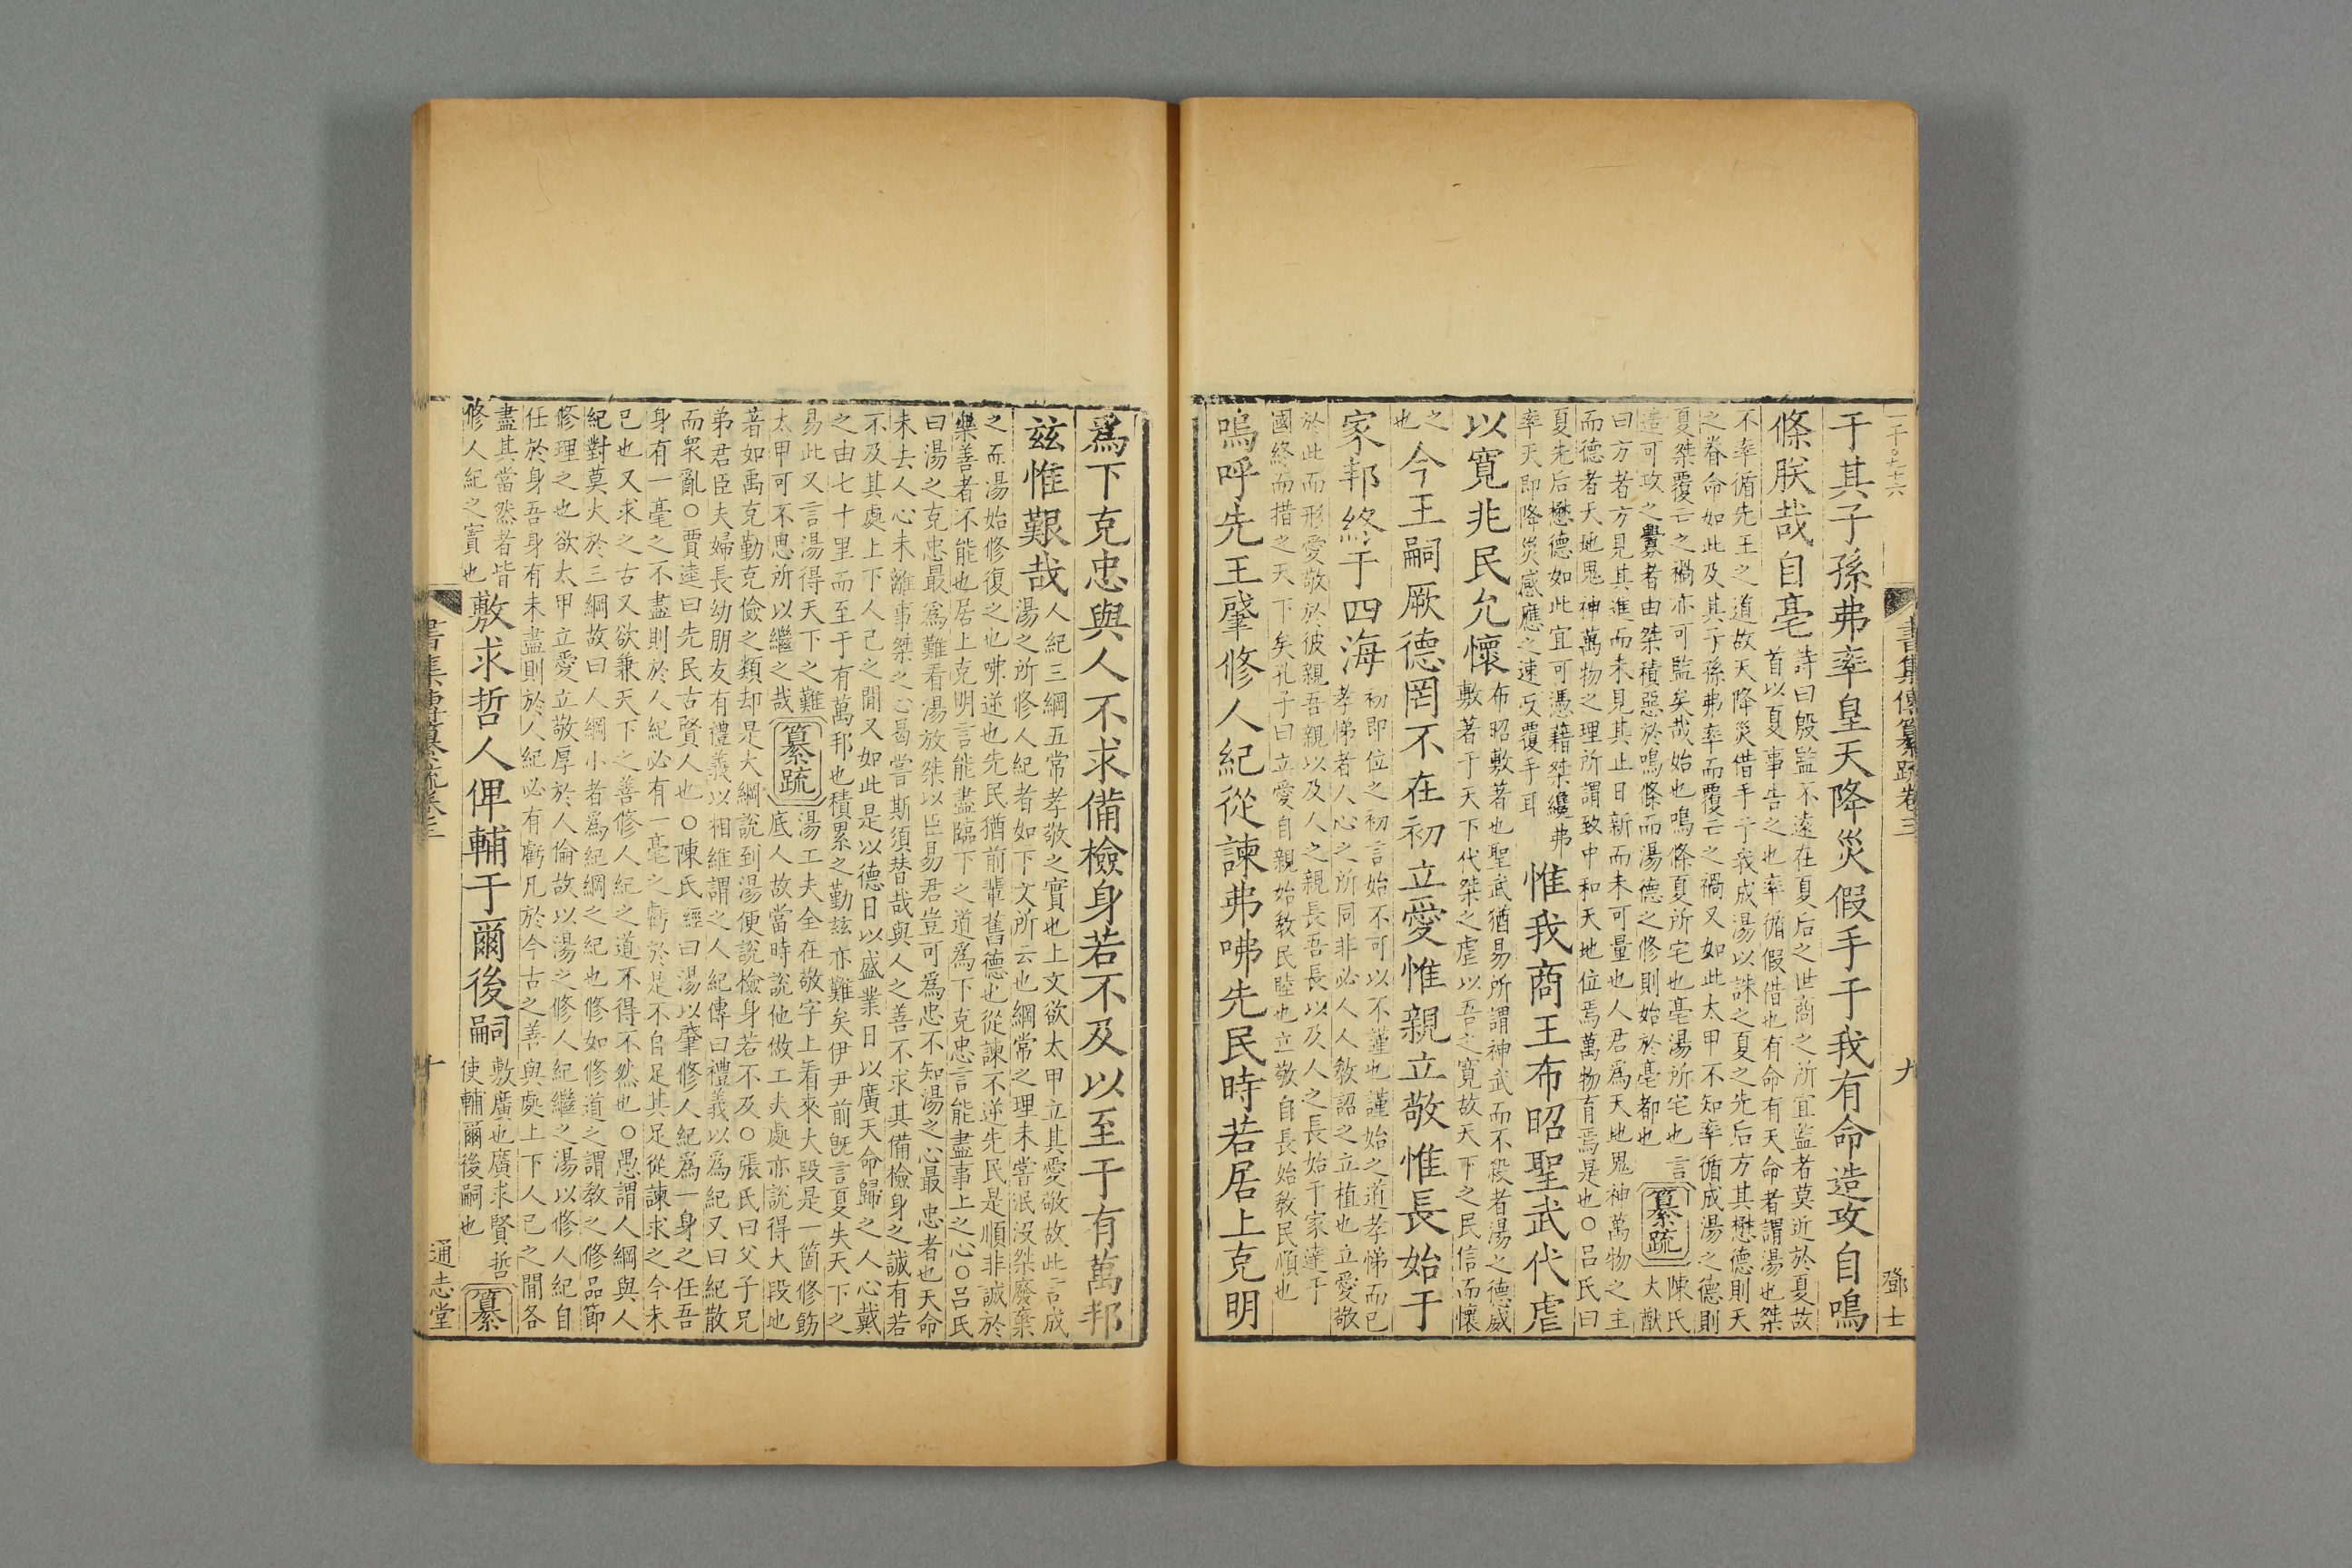 一千○九十六
書集傳纂疏卷三
九
鄧士
于其子孫弗率皇天降災假手于我有命造攻自鳴
條朕哉自亳
詩曰殷監不遠在夏后之世商之所宜監者莫近於夏故
首以夏事告之也率循假借也有命有天命者謂湯也桀
不率循先王之道故天降災借手于我成湯以誅之夏之先后方其懋德則天
之眷命如此及其子孫弗率而覆亡之禍又如此太甲不知率循成湯之德則
夏桀覆亡之禍亦可監矣哉始也鳴條夏所宅也亳湯所宅也言
造可攻之釁者由桀積惡於鳴條而湯德之修則始於亳都也
纂疏
陳氏
大猷
曰方者方見其進而未見其止日新而未可量也人君爲天地鬼神萬物之主
而德者天地鬼神萬物之理所謂致中和天地位焉萬物育焉是也○呂氏曰
夏先后懋德如此宜可憑藉桀纔弗
率天即降災感應之速反覆手耳
惟我商王布昭聖武代虐
以寬兆民允懷
布昭敷著也聖武猶易所謂神武而不殺者湯之德威
敷著于天下代桀之虐以吾之寬故天下之民信而懷
之
也
今王嗣厥德罔不在初立愛惟親立敬惟長始于
家邦終于四海
初即位之初言始不可以不謹也謹始之道孝悌而已
孝悌者人心之所同非必人人敎詔之立植也立愛敬
於此而形愛敬於彼親吾親以及人之親長吾長以及人之長始于家達于
國終而措之天下矣孔子曰立愛自親始敎民睦也立敬自長始敎民順也
嗚呼先王肇修人紀從諫弗咈先民時若居上克明
爲下克忠與人不求備檢身若不及以至于有萬邦
茲惟艱哉
人紀三綱五常孝敬之實也上文欲太甲立其愛敬故此言成
湯之所修人紀者如下文所云也綱常之理未嘗泯沒桀廢棄
之而湯始修復之也咈逆也先民猶前輩舊德也從諫不逆先民是順非誠於
樂善者不能也居上克明言能盡臨下之道爲下克忠言能盡事上之心○呂氏
曰湯之克忠最爲難看湯放桀以臣易君豈可爲忠不知湯之心最忠者也天命
未去人心未離事桀之心曷嘗斯須替哉與人之善不求其備檢身之誠有若
不及其處上下人己之閒又如此是以德日以盛業日以廣天命歸之人心戴
之由七十里而至于有萬邦也積累之勤茲亦難矣伊尹前旣言夏失天下之
易此又言湯得天下之難
太甲可不思所以繼之哉
纂疏
湯工夫全在敬字上看來大段是一箇修飭
底人故當時說他做工夫處亦說得大段地
著如禹克勤克儉之類却是大綱說到湯便說檢身若不及○張氏曰父子兄
弟君臣夫婦長幼朋友有禮義以相維謂之人紀傳曰禮義以爲紀又曰紀散
而衆亂○賈逵曰先民古賢人也○陳氏經曰湯以肇修人紀爲一身之任吾
身有一毫之不盡則於人紀必有一毫之虧於是不自足其足從諫求之今未
已也又求之古又欲兼天下之善修人紀之道不得不然也○愚謂人綱與人
紀對莫大於三綱故曰人綱小者爲紀綱之紀也修如修道之謂敎之修品節
修理之也欲太甲立愛立敬厚於人倫故以湯之修人紀繼之湯以修人紀自
任於身吾身有未盡則於人紀必有虧凡於今古之善與處上下人己之閒各
盡其當然者皆
修人紀之實也
敷求哲人俾輔于爾後嗣
敷廣也廣求賢哲
使輔爾後嗣也
纂
書集傳纂疏卷三
十
通志堂